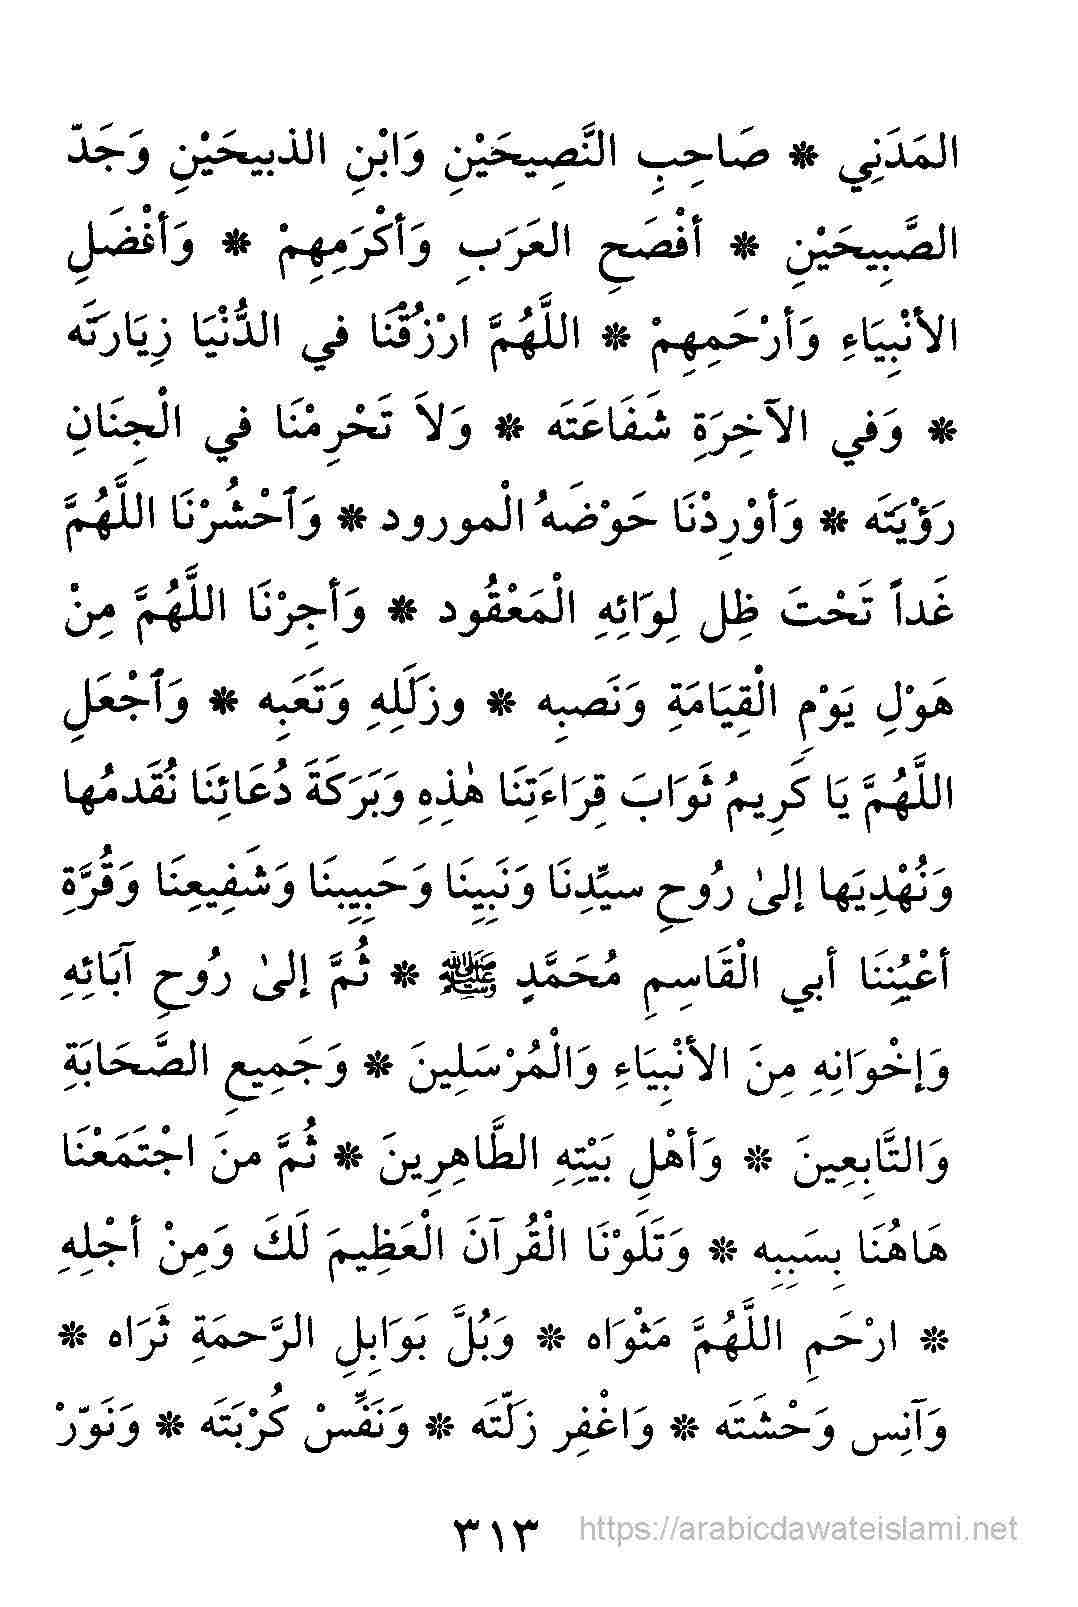 المَدَنِي ❋ صَاحِبِ النَّصِيحَيْنِ وَابْنِ الذبيحَيْنِ وَجَدّ
الصَّبِيحَيْنِ ❋ أفْصَحِ العَرَبِ وَأكْرَمِهِمْ ❋ وَأفْضَلِ
الأنْبِيَاءِ وَأرْحَمِهِمْ ❋ اللَّهُمَّ ارْزُقْنَا في الدُّنْيَا زِيَارَتَه
❋ وَفي الآخِرَةِ شَفَاعَتَه ❋ وَلاَ تَحْرِمْنَا في الْجِنَانِ
رَؤْيَتَه ❋ وَأوْرِدْنَا حَوْضَهُ الْمورود ❋ وَٱحْشُرْنَا اللَّهُمَّ
غَداً تَحْتَ ظِل لِوَائِهِ الْمَعْقُود ❋ وَأجِرْنَا اللَّهُمَّ مِنْ
هَوْلِ يَوْمِ الْقِيَامَةِ وَنَصبِه ❋ وزلَلِهِ وَتَعَبِه ❋ وَٱجْعَلِ
اللَّهُمَّ يَا كَرِيمُ ثَوَابَ قِرَاءَتِنَا هٰذِهِ وَبَرَكَةَ دُعَائِنَا نُقَدمُها
وَنُهْدِيَها إلىٰ رُوحِ سيِّدِنَا وَنَبِيِنَا وَحَبِيبِنَا وَشَفِيعِنَا وَقُرَّةِ
أعْيُنِنَا أبي الْقَاسِمِ مُحَمَّدٍ ﷺ ❋ ثُمَّ إلىٰ رُوحِ آبَائِهِ
وَإخْوَانِهِ مِنَ الأنْبِيَاءِ وَالْمُرْسَلِينَ ❋ وَجَمِيعِ الصَّحَابَةِ
وَالتَّابِعِينَ ❋ وَأهْلِ بَيْتِهِ الطَّاهِرِينَ ❋ ثُمَّ منَ اجْتَمَعْنَا
هَاهُنَا بِسَبِبِه ❋ وَتَلَوْنَا الْقُرآنَ الْعَظِيمَ لَكَ وَمِنْ أجْلِهِ
❋ ارْحَمِ اللَّهُمَّ مَثْوَاه ❋ وَبُلَّ بَوَابِلِ الرَّحمَةِ ثَرَاه ❋
وَآنِس وَحْشَتَه ❋ وَاغْفِر زلَّتَه ❋ وَنَفِّسْ كُرْبَتَه ❋ وَنَوّرْ
٣١٣ https://arabicdawateislami.net